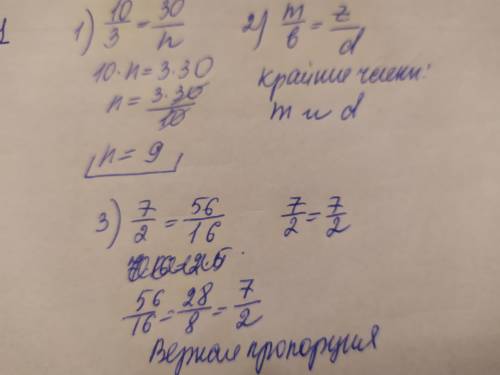 1
1) 10/3 = 30/n
10·n = 3·30
n = 3·30/10
n = 9
2) m/b = z/d
крайние члены:
m и d
3) 7/2 = 56/16 7/2 = 7/2
56/16 = 28/8 = 7/2
Верная пропорция